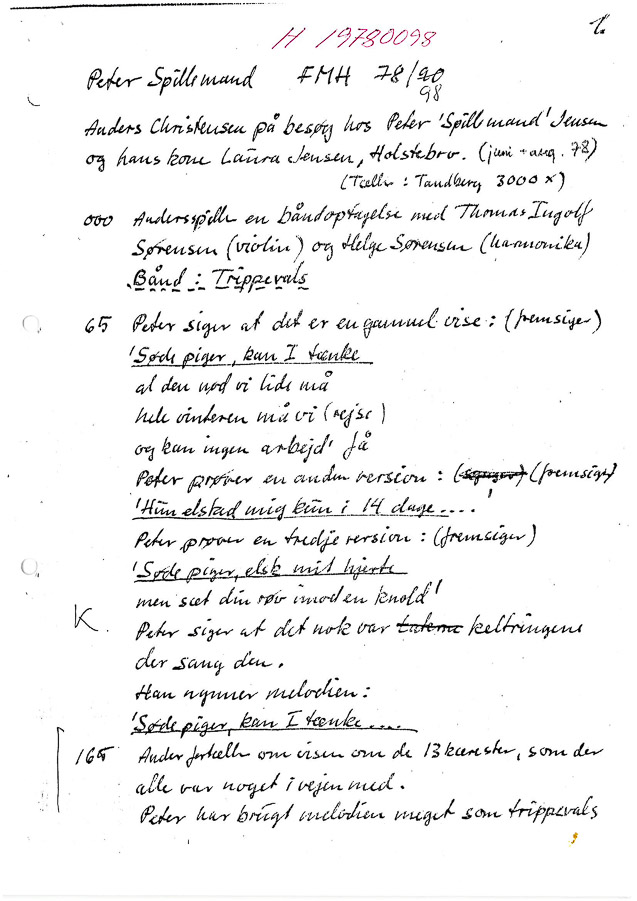 1.
H 19780098
Peter Spillemand FMH 78/90
98
Anders Christensen på besøg hos Peter 'Spillemand' Jensen
og hans kone Laura Jensen, Holstebro. (juni + aug. 78)
(Tæller: Tandberg 3000 x)
000 Anders spiller en båndoptagelse med Thomas Ingolf
Sørensen (violin) og Helge Sørensen (harmonika)
Bånd: Trippevals
65 Peter siger at det er en gammel vise: (fremsiger)
'Søde piger, kan I tænke
al den nød vi lide må
hele vinteren må vi (rejse)
og kan ingen arbejd' få
Peter prøver en anden version: (synger) (fremsiger)
'Hun elsked mig kun i 14 dage....'
Peter prøver en tredje version: (fremsiger)
'Søde piger, elsk mit hjerte
men sæt din røv imod en knold'
K. Peter siger at det nok var taterne keltringene
der sang den.
Han nynner melodien:
'Søde piger, kan I tænke....
165 Anders fortæller om visen om de 13 kærester, som der
alle var noget i vejen med.
Peter har brugt melodien meget som trippevals